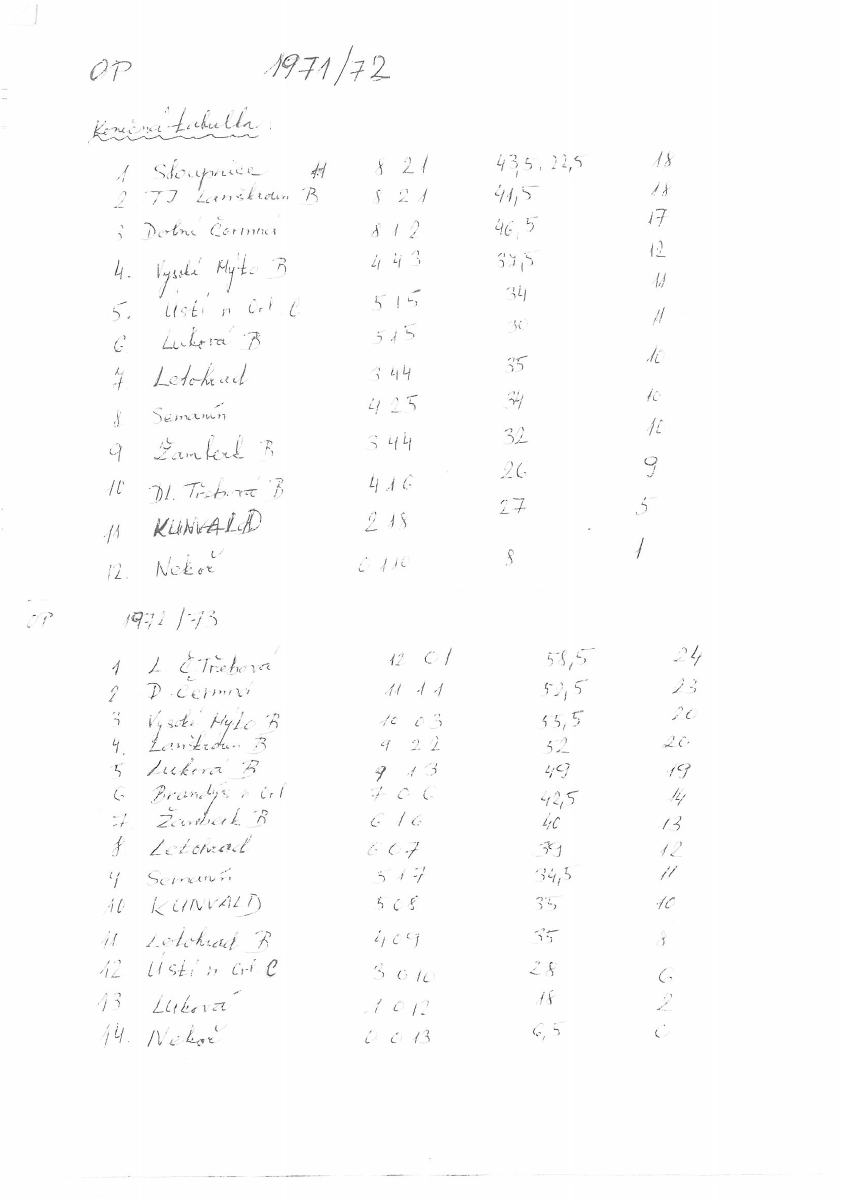 OP 1971/72
Konečná tabulka:
1 Sloupnice 11 8 2 1 43,5. 22,5 18
2 TJ Lanškroun B 8 2 1 41,5 18
3 Dolní Čermná 8 1 2 46,5 17
4. Vysoké Mýto B 4 4 3 37,5 12
5. Ústí n Orl C 5 1 5 34 11
6 Luková B 5 1 5 30 11
7 Letohrad 3 4 4 35 10
8 Semanín 4 2 5 34 10
9 Žamberk B 3 4 4 32 10
10 Dl. Třebová B 4 1 6 26 9
11 KUNVALD 2 1 8 27 5
12. Nekoř 0 1 10 8 1
OP 1972/73
1 L Č. Třebová 12 0 1 58,5 24
2 D. Čermná 11 1 1 52,5 23
3 Vysoké Mýto B 10 0 3 55,5 20
4. Lanškroun B 9 2 2 52 20
5 Luková B 9 1 3 49 19
6 Brandýs n Orl 7 0 6 42,5 14
7. Žamberk B 6 1 6 40 13
8 Letohrad 6 0 7 39 12
9 Semanín 5 1 7 34,5 11
10 KUNVALD 5 0 8 35 10
11 Letohrad B 4 0 9 35 8
12 Ústí n Orl C 3 0 10 28 6
13 Luková 1 0 12 18 2
14. Nekoř 0 0 13 6,5 0